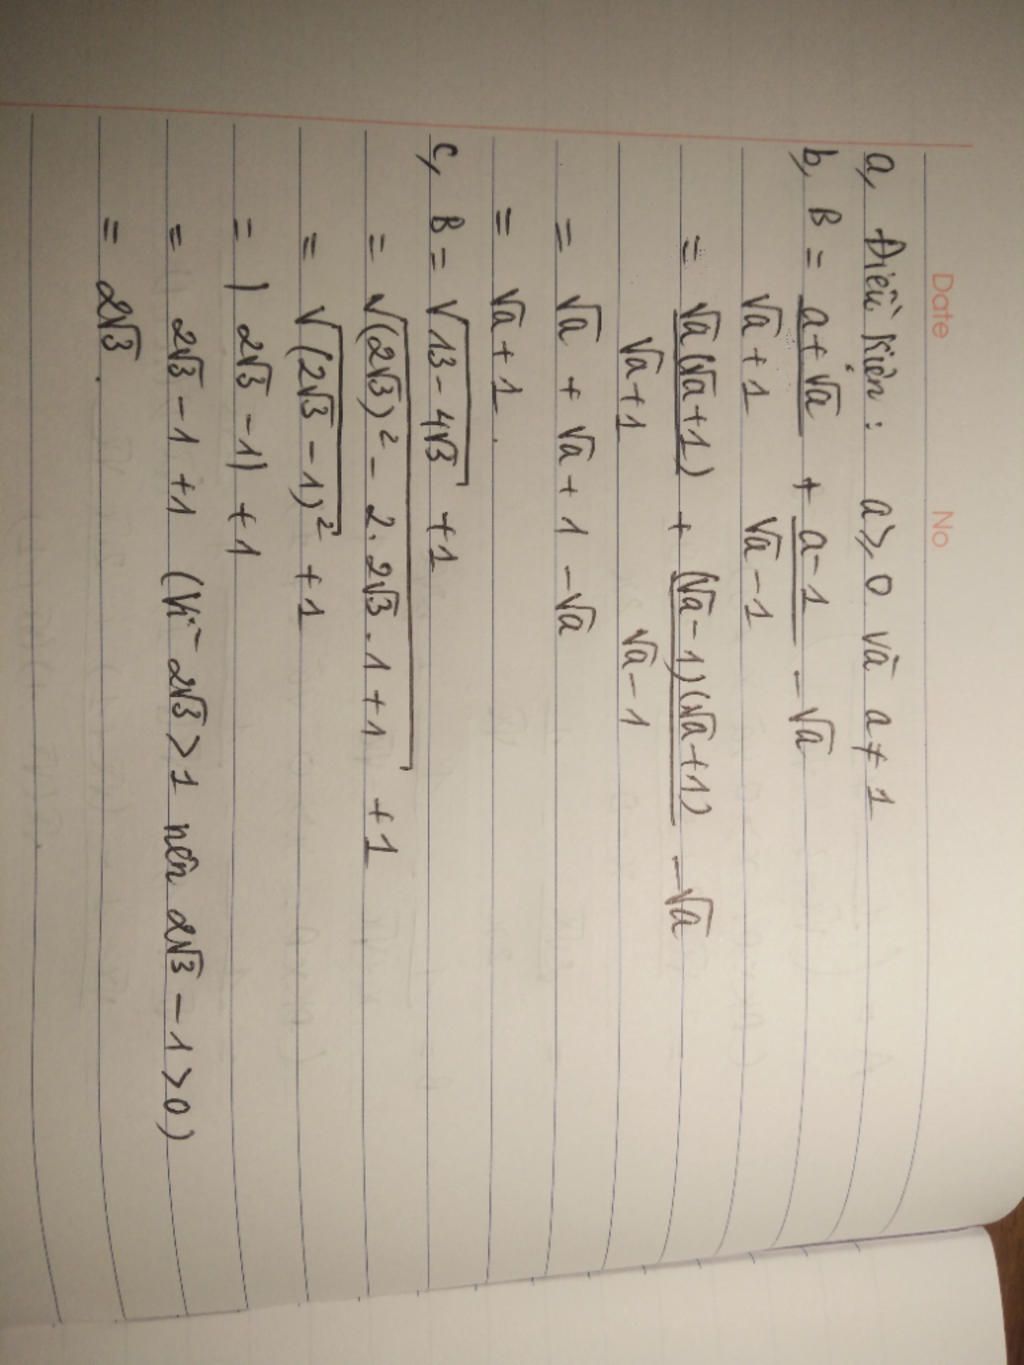 Date No
a, Điều kiện : a ≥ 0 và a ≠ 1
b, B = a+√a + a-1 - √a
√a+1 √a-1
= √a(√a+1) + (√a-1)(√a+1) - √a
√a+1 √a-1
= √a + √a+1 - √a
= √a+1.
c, B = √13-4√3 +1
= √(2√3)² - 2.2√3.1+1 +1
= √(2√3-1)² +1
= |2√3-1| +1
= 2√3-1+1 (Vì 2√3>1 nên 2√3-1>0)
= 2√3.